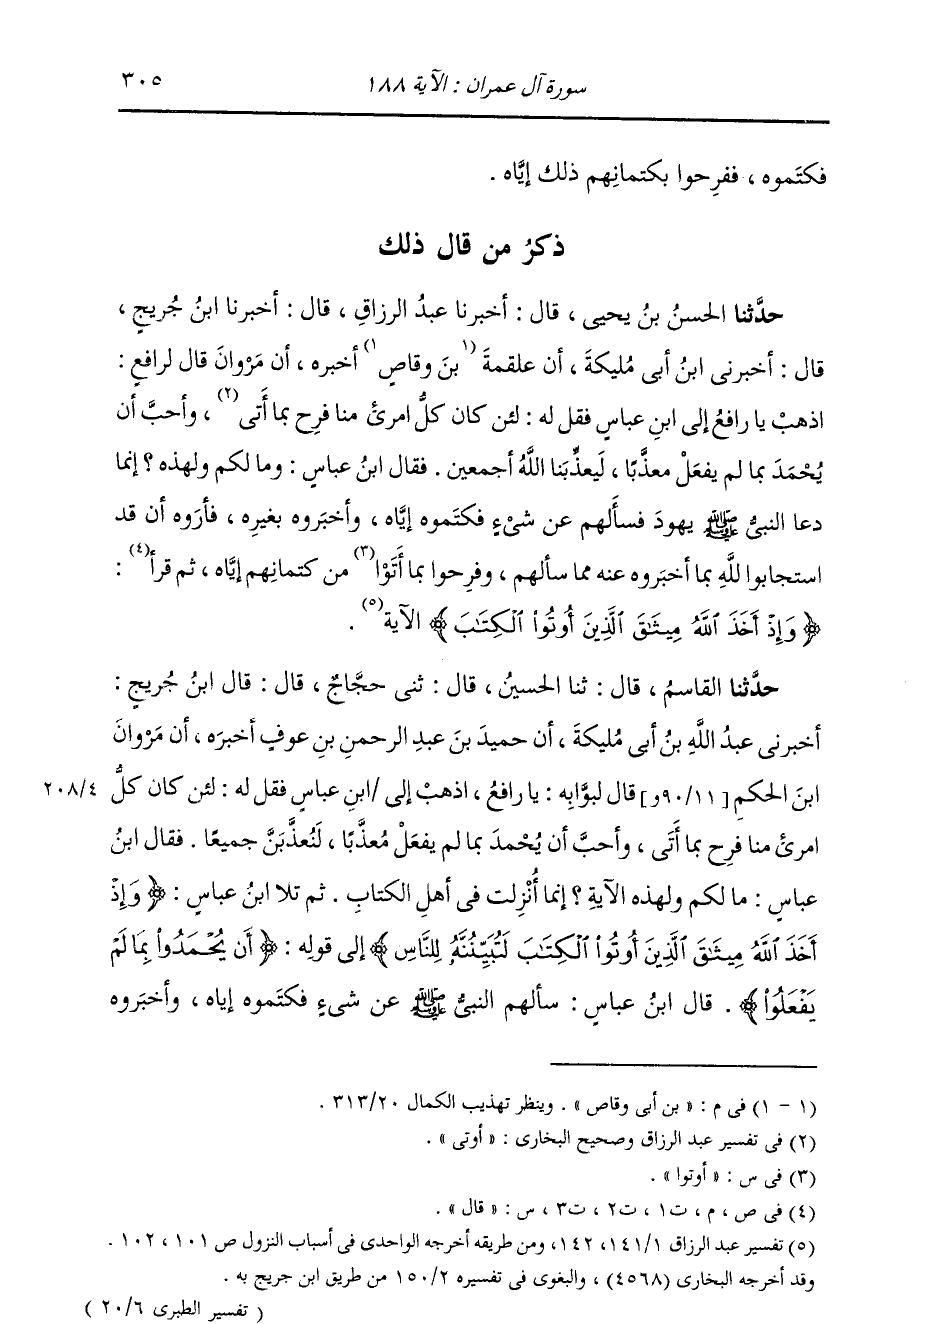 سورة آل عمران : الآية ١٨٨ ٣٠٥
فكتَموه ، ففرِحوا بكتمانِهم ذلك إيَّاه .
ذكرُ من قال ذلك
حدَّثنا الحسنُ بنُ يحيى ، قال : أخبرنا عبدُ الرزاقِ ، قال : أخبرنا ابنُ جُريجٍ ،
قال : أخبرنى ابنُ أبى مُليكةَ ، أن علقمةَ (١ بنَ وقاصٍ ١) أخبره ، أن مَرْوانَ قال لرافعٍ :
اذهبْ يا رافعُ إلى ابنِ عباسٍ فقل له : لئن كان كلُّ امرئٍ منا فرِح بما أَتى (٢) ، وأحبَّ أن
يُحْمَدَ بما لم يفعَلْ معذَّبًا ، لَيعذِّبَنا اللَّهُ أجمعين . فقال ابنُ عباسٍ : وما لكم ولهذه ؟ إنما
دعا النبىُّ ﷺ يهودَ فسأَلهم عن شىْءٍ فكتَموه إيَّاه ، وأخبَروه بغيرِه ، فأرَوه أن قد
استجابوا للَّهِ بما أخبَروه عنه مما سألهم ، وفرِحوا بما أَتَوْا (٣) من كتمانِهم إيَّاه ، ثم قرأ (٤) :
﴿ وَإِذْ أَخَذَ ٱللَّهُ مِيثَٰقَ ٱلَّذِينَ أُوتُوا۟ ٱلْكِتَٰبَ ﴾ الآية (٥) .
حدَّثنا القاسمُ ، قال : ثنا الحسينُ ، قال : ثنى حجَّاجٌ ، قال : قال ابنُ جريجٍ :
أخبرنى عبدُ اللَّهِ بنُ أبى مُليكةَ ، أن حميدَ بنَ عبدِ الرحمنِ بنِ عوفٍ أخبرَه ، أن مَرْوانَ
ابنَ الحكمِ [٩٠/١١و] قال لبوَّابِه : يا رافعُ ، اذهبْ إلى /ابنِ عباسٍ فقل له : لئن كان كلُّ ٢٠٨/٤
امرئٍ منا فرِح بما أَتَى ، وأحبَّ أن يُحْمدَ بما لم يفعَلْ مُعذَّبًا ، لَنُعذَّبَنَّ جميعًا . فقال ابنُ
عباسٍ : ما لكم ولهذه الآيةِ ؟ إنما أُنْزِلت فى أهلِ الكتابِ . ثم تلا ابنُ عباسٍ : ﴿ وَإِذْ
أَخَذَ ٱللَّهُ مِيثَٰقَ ٱلَّذِينَ أُوتُوا۟ ٱلْكِتَٰبَ لَتُبَيِّنُنَّهُۥ لِلنَّاسِ ﴾ إلى قولِه : ﴿ أَن يُحْمَدُوا۟ بِمَا لَمْ
يَفْعَلُوا۟ ﴾ . قال ابنُ عباسٍ : سألهم النبىُّ ﷺ عن شىءٍ فكتَموه إياه ، وأخبَروه
(١ - ١) فى م : « بن أبى وقاص » . وينظر تهذيب الكمال ٣١٣/٢٠ .
(٢) فى تفسير عبد الرزاق وصحيح البخارى : « أوتى » .
(٣) فى س : « أوتوا » .
(٤) فى ص ، م ، ت١ ، ت٢ ، ت٣ ، س : « قال » .
(٥) تفسير عبد الرزاق ١٤١/١، ١٤٢، ومن طريقه أخرجه الواحدى فى أسباب النزول ص ١٠١ ، ١٠٢ .
وقد أخرجه البخارى (٤٥٦٨) ، والبغوى فى تفسيره ١٥٠/٢ من طريق ابن جريج به .
( تفسير الطبرى ٢٠/٦ )